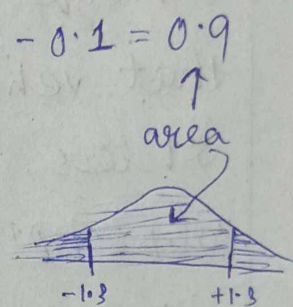 - 0.1 = 0.9
area
-1.3 +1.3